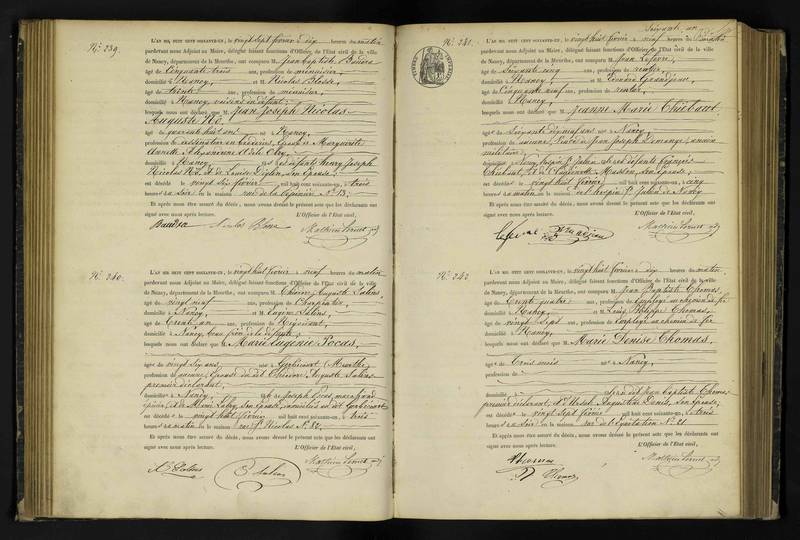 N.° 239.
L'AN MIL HUIT CENT SOIXANTE-UN, le vingt sept février à dix heures du matin
pardevant nous Adjoint au Maire, délégué faisant fonctions d'Officier de l'Etat civil de la ville
de Nancy, département de la Meurthe, ont comparu M. Jean Baptiste
âgé de Cinquante trois ans, profession de menuisier,
domicilié à Nancy, et M. Nicolas Blosse
âgé de trente ans, profession de menuisier,
domicilié à Nancy, voisins du défunt;
lesquels nous ont déclaré que M. Jean Joseph Nicolas
Auguste
âgé de quarante huit ans né à Nancy,
profession de dessinateur en broderies, Epoux de Marguerite
domicilié à Nancy, fils des défunts Henry Joseph
Nicolas et de Louise son Epouse;
est décédé le vingt six février, mil huit cent soixante-un, à trois
heures du soir en la maison rue de la Pépinière N.° 13;
Et après nous être assuré du décès, nous avons dressé le présent acte que les déclarants ont
signé avec nous après lecture. L'Officier de l'Etat civil,
Nicolas Blosse
N.° 240.
L'AN MIL HUIT CENT SOIXANTE-UN, le vingt huit février à neuf heures du matin
pardevant nous Adjoint au Maire, délégué faisant fonctions d'Officier de l'Etat civil de la ville
de Nancy, département de la Meurthe, ont comparu M. Auguste Salens
âgé de vingt neuf ans, profession de Charpentier,
domicilié à Nancy, et M. Eugène Salens,
âgé de Trente un ans, profession de Négociant,
domicilié à Nancy, beau frère de la défunte;
lesquels nous ont déclaré que M. Marie Eugénie Pocas,
âgé de vingt six ans, née à Gerbécourt (Meurthe)
profession de aucune, Epouse du dit Auguste Salens
premier déclarant;
domicilié à Nancy, fille de Joseph Pocas marchand
son Epouse, domiciliés au dit Gerbécourt
est décédée le vingt huit février mil huit cent soixante-un, à trois
heures du matin en la maison rue St. Nicolas N.° 82;
Et après nous être assuré du décès, nous avons dressé le présent acte que les déclarants ont
signé avec nous après lecture. L'Officier de l'Etat civil,
Salens
Soixante un
N.° 241.
L'AN MIL HUIT CENT SOIXANTE-UN, le vingt huit février à neuf heures du matin
pardevant nous Adjoint au Maire, délégué faisant fonctions d'Officier de l'Etat civil de la ville
de Nancy, département de la Meurthe, ont comparu M. Jean
âgé de Soixante cinq ans, profession de rentier,
domicilié à Nancy, et M. Edouard Grandjean,
âgé de Cinquante neuf ans, profession de rentier,
domicilié à Nancy,
lesquels nous ont déclaré que M. Jeanne Marie Thiébaut
âgé de Soixante dix neuf ans née à Nancy,
profession de aucune, Veuve de Jean Joseph Demange, ancien
militaire;
domicilié à Nancy, hospice St. Julien, fille des défunts François
Thiébaut, et de son Epouse;
est décédée le vingt huit février mil huit cent soixante-un, à cinq
heures du matin en la maison de l'hospice St. Julien de Nancy
Et après nous être assuré du décès, nous avons dressé le présent acte que les déclarants ont
signé avec nous après lecture. L'Officier de l'Etat civil,
N.° 242.
L'AN MIL HUIT CENT SOIXANTE-UN, le vingt huit février à dix heures du matin,
pardevant nous Adjoint au Maire, délégué faisant fonctions d'Officier de l'Etat civil de la ville
de Nancy, département de la Meurthe, ont comparu M. Jean Baptiste Thomas,
âgé de Trente quatre ans, profession de Employé au chemin de fer
domicilié à Nancy, et M. Louis Philippe Thomas,
âgé de vingt sept ans, profession de Employé au chemin de fer
domicilié à Nancy,
lesquels nous ont déclaré que M. Marie Denise Thomas,
âgé de Trois mois née à Nancy,
profession de
domicilié fille du dit Jean Baptiste Thomas
premier déclarant, et d' Augustine Denis, son Epouse;
est décédée le vingt sept février mil huit cent soixante-un, à trois
heures du soir en la maison rue de l'Equitation N.° 21
Et après nous être assuré du décès, nous avons dressé le présent acte que les déclarants ont
signé avec nous après lecture. L'Officier de l'Etat civil,
Thomas
Thomas